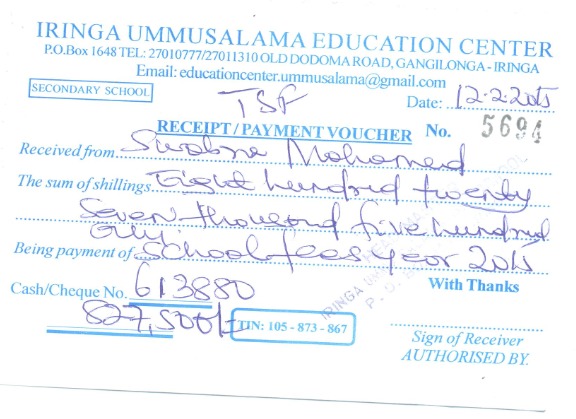 IRINGA UMMUSALAMA EDUCATION CENTER
P.O.Box 1648 TEL: 27010777/27011310 OLD DODOMA ROAD, GANGILONGA - IRINGA
Email: educationcenter.ummusalama@gmail.com
SECONDARY SCHOOL
TSF
Date: 12-2-2015
RECEIPT / PAYMENT VOUCHER No. 5694
Received from Mohamed
The sum of shillings Eight hundred twenty
Seven thousand five hundred
Only
Being payment of School fees year 2015
Cash/Cheque No. 613880
With Thanks
827,500/=
TIN: 105 - 873 - 867
IRINGA UMMUSALAMA
Sign of Receiver
AUTHORISED BY.